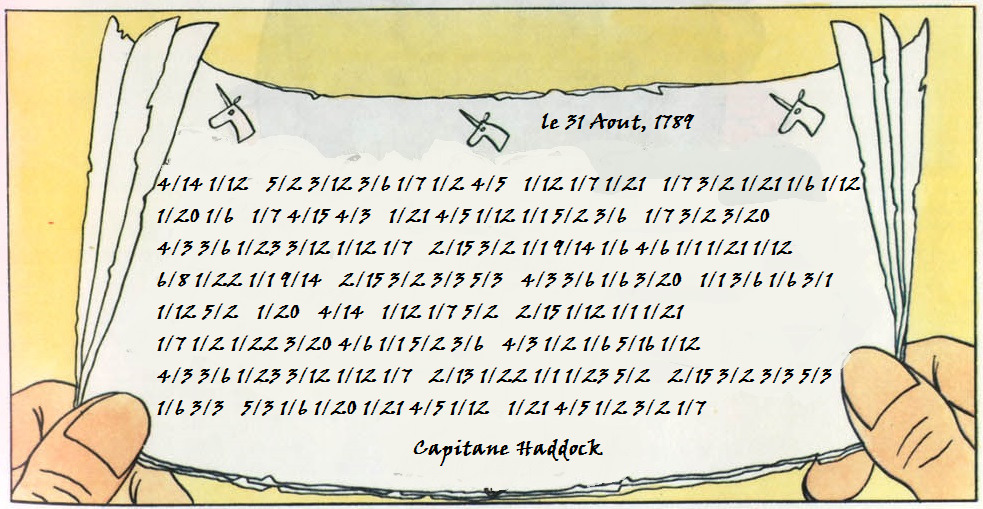 le 31 Aout, 1789
4/14 1/12 5/2 3/12 3/6 1/7 1/2 4/5 1/12 1/7 1/21 1/7 3/2 1/21 1/6 1/12
1/20 1/6 1/7 4/15 4/3 1/21 4/5 1/12 1/1 5/2 3/6 1/7 3/2 3/20
4/3 3/6 1/23 3/12 1/12 1/7 2/15 3/2 1/19/14 1/6 4/6 1/1 1/21 1/12
6/8 1/22 1/19/14 2/15 3/2 3/3 5/3 4/3 3/6 1/6 3/20 1/1 3/6 1/6 3/1
1/12 5/2 1/20 4/14 1/12 1/7 5/2 2/15 1/12 1/1 1/21
1/7 1/2 1/22 3/20 4/6 1/1 5/2 3/6 4/3 1/2 1/6 5/16 1/12
4/3 3/6 1/23 3/12 1/12 1/7 2/13 1/22 1/1 1/23 5/2 2/15 3/2 3/3 5/3
1/6 3/3 5/3 1/6 1/20 1/21 4/5 1/12 1/21 4/5 1/2 3/2 1/7
Capitane Haddock